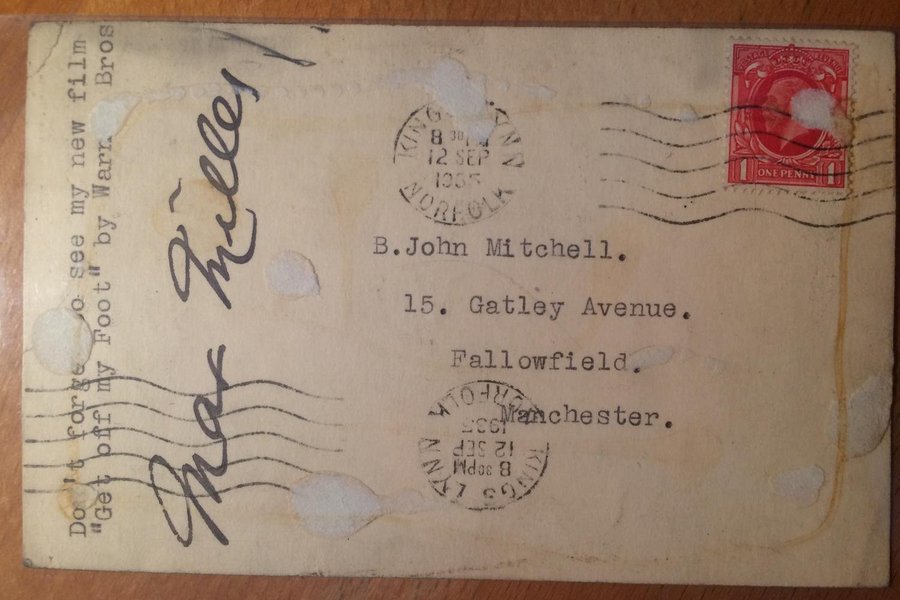 Don't forget to see my new film
"Get off my Foot" by Warn Bros
Max Miller
8 30PM
12 SEP
1935
NORFOLK
POSTAGE REVENUE
1 ONE PENNY 1
B.John Mitchell.
15. Gatley Avenue.
Fallowfield.
Manchester.
KINGS LYNN
8 30PM
12 SEP
1935
NORFOLK